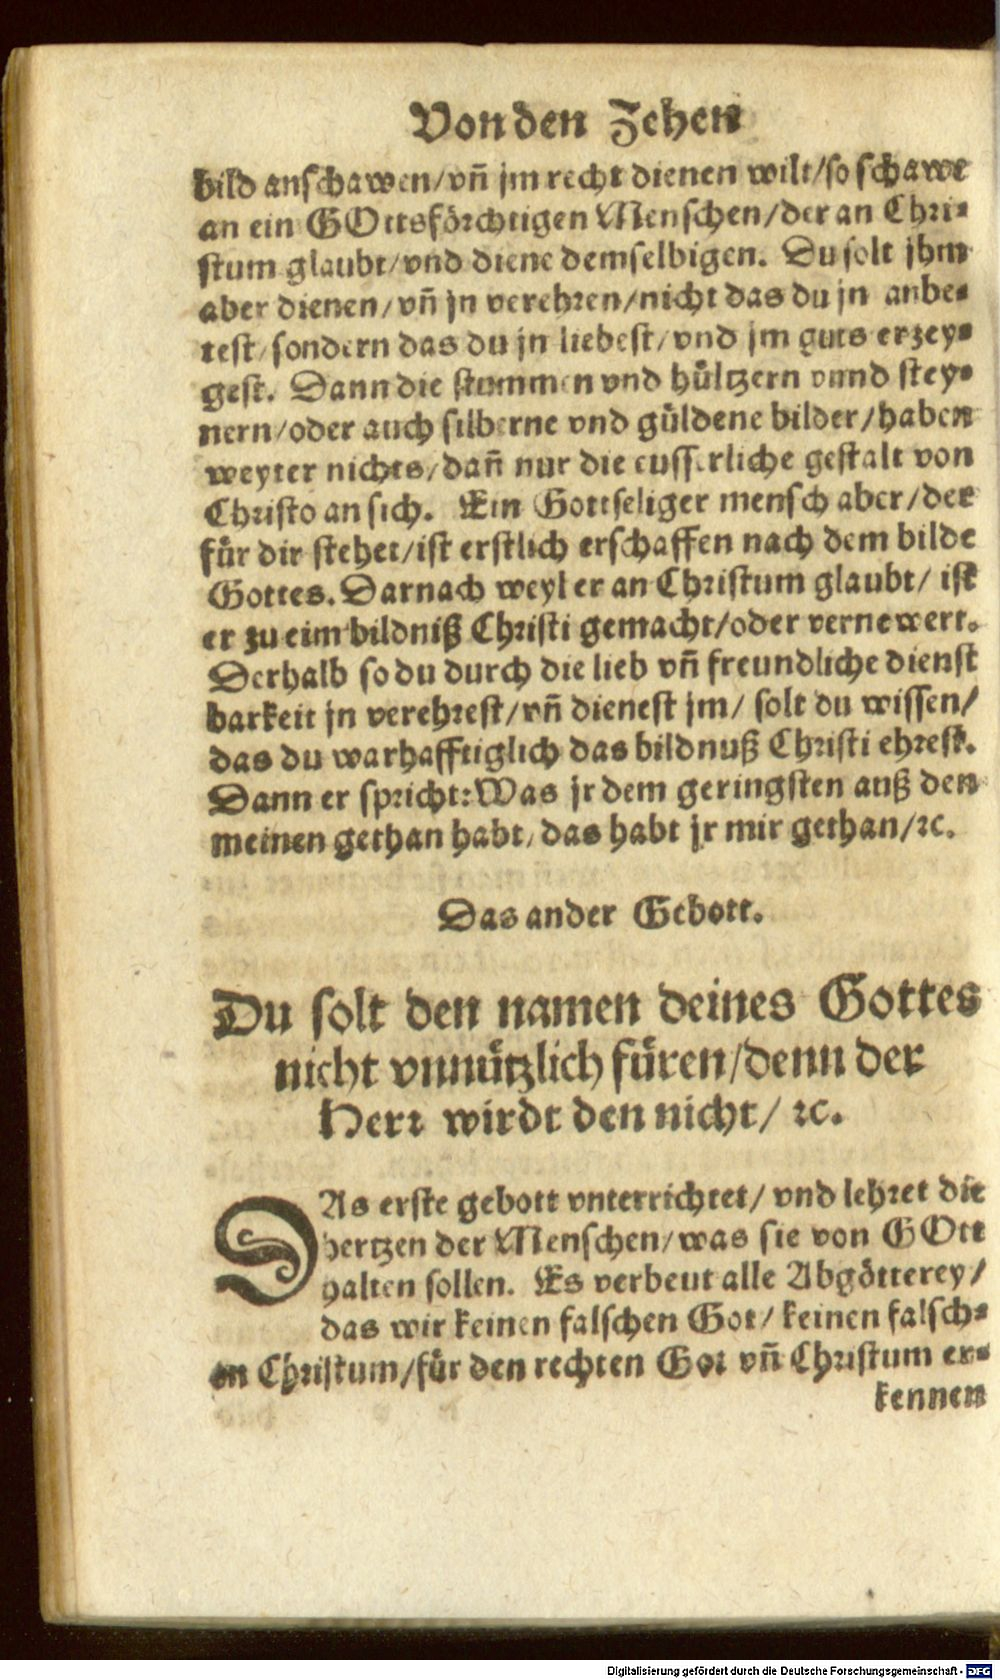 Von den Zehen
bild anschawen/vñ jm recht dienen wilt/so schawe
an ein GOttsförchtigen Menschen/der an Chri-
stum glaubt/vnd diene demselbigen. Du solt jhm
aber dienen/vñ jn verehren/nicht das du jn anbe-
test/sondern das du jn liebest/vnd jm guts erzey-
gest. Dann die stummen vnd hültzern vnnd stey-
nern/oder auch silberne vnd güldene bilder/haben
weyter nichts/dañ nur die eusserliche gestalt von
Christo an sich. Ein Gottseliger mensch aber/der
für dir stehet/ist erstlich erschaffen nach dem bilde
Gottes. Darnach weyl er an Christum glaubt/ ist
er zu eim bildniß Christi gemacht/oder vernewert.
Derhalb so du durch die lieb vñ freundliche dienst
barkeit jn verehrest/vñ dienest jm/ solt du wissen/
das du warhafftiglich das bildnuß Christi ehrest.
Dann er spricht: Was jr dem geringsten auß den
meinen gethan habt/das habt jr mir gethan/ꝛc.
Das ander Gebott.
Du solt den namen deines Gottes
nicht vnnützlich füren/denn der
Herr wirdt den nicht/ ꝛc.
DAs erste gebott vnterrichtet/ vnd lehret die
hertzen der Menschen/was sie von GOtt
halten sollen. Es verbeut alle Abgötterey/
das wir keinen falschen Got/ keinen falsch-
en Christum/für den rechten Got vñ Christum er-
kennen
Digitalisierung gefördert durch die Deutsche Forschungsgemeinschaft - DFG